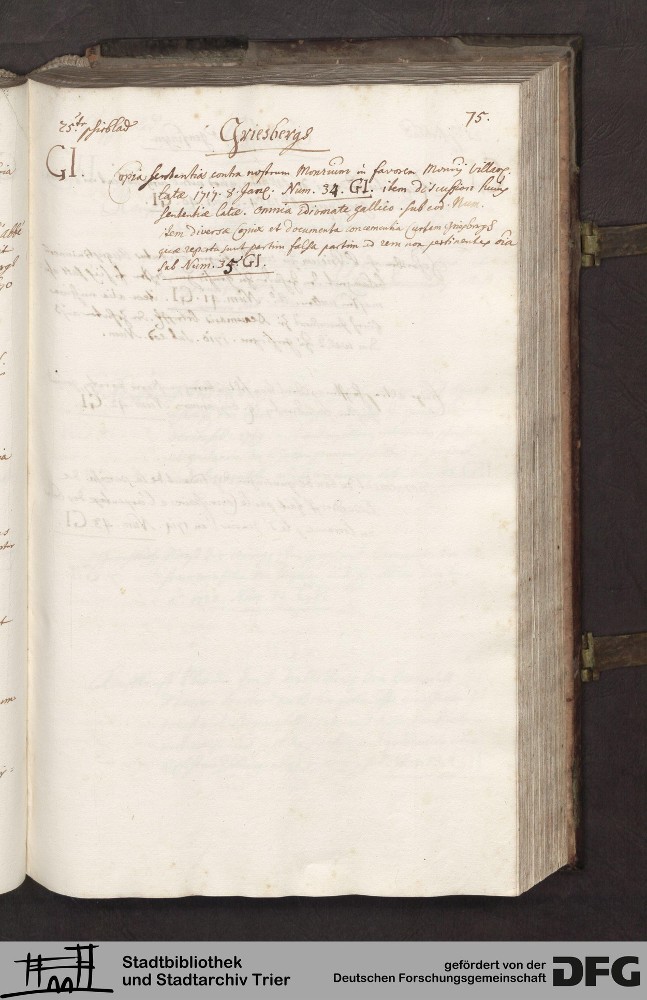 75.
25.te schoblad
Griesbergs
GI. Copia sententias contra nostrum Monrium in favorem Monrij Villery.
latae 1717. 8. Janej. Num. 34. GI. item discussioni hujus
sententiae latae. omnia idiomate gallico. sub eod. Num.
item diversae copiae et documenta concernentia curtem
quae reperta sunt partim falsa partim ad rem non pertinentia
sub Num. 35 GI.
Stadtbibliothek
und Stadtarchiv Trier
gefördert von der
Deutschen Forschungsgemeinschaft
DFG